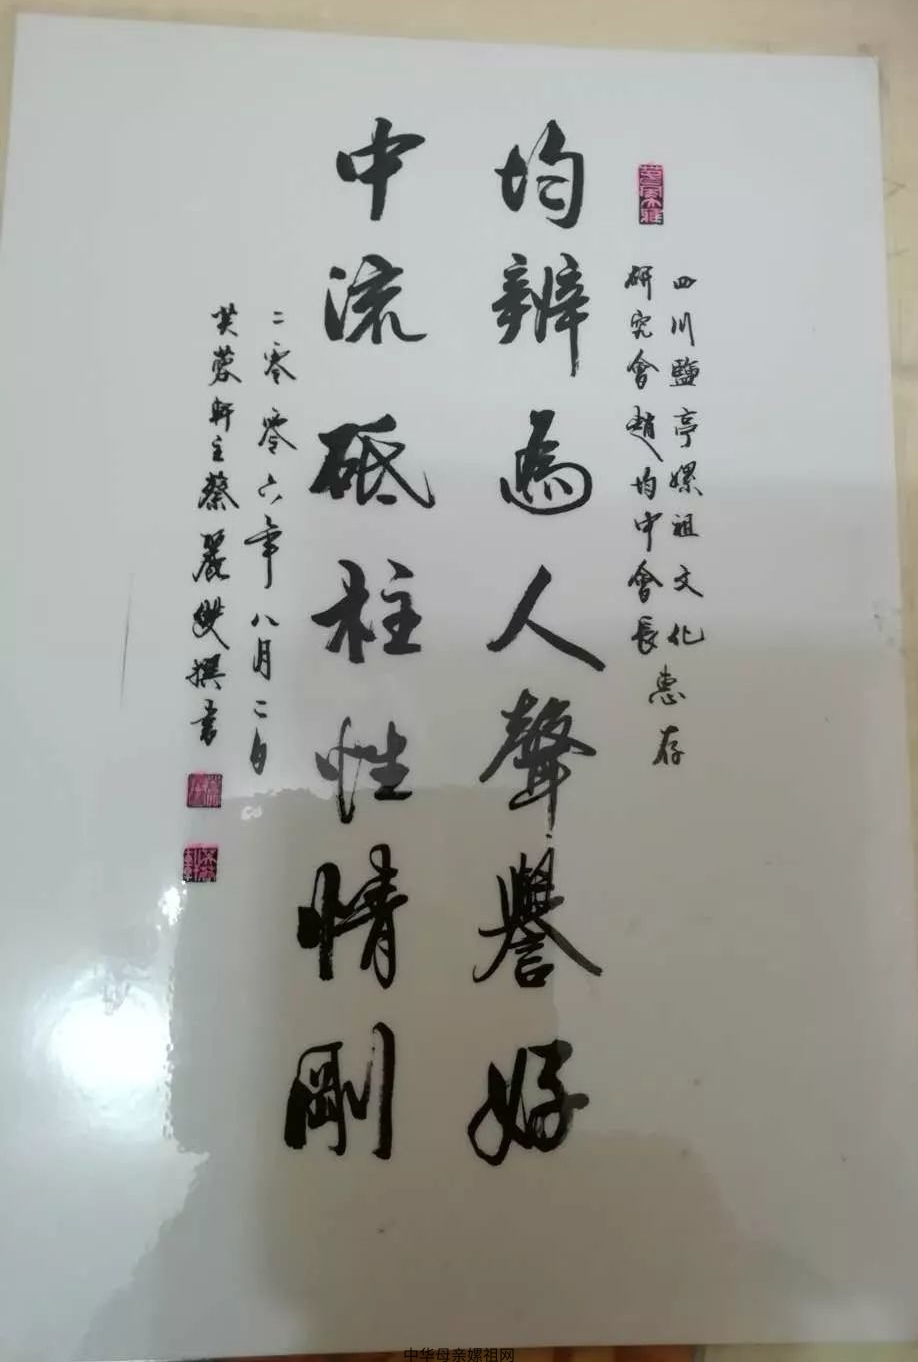 四川鹽亭嫘祖文化
研究會趙均中會長惠存
均辦為人聲譽好
中流砥柱性情剛
二零零六年八月二日
芙蓉軒主蔡麗雙撰書
中华母亲嫘祖网